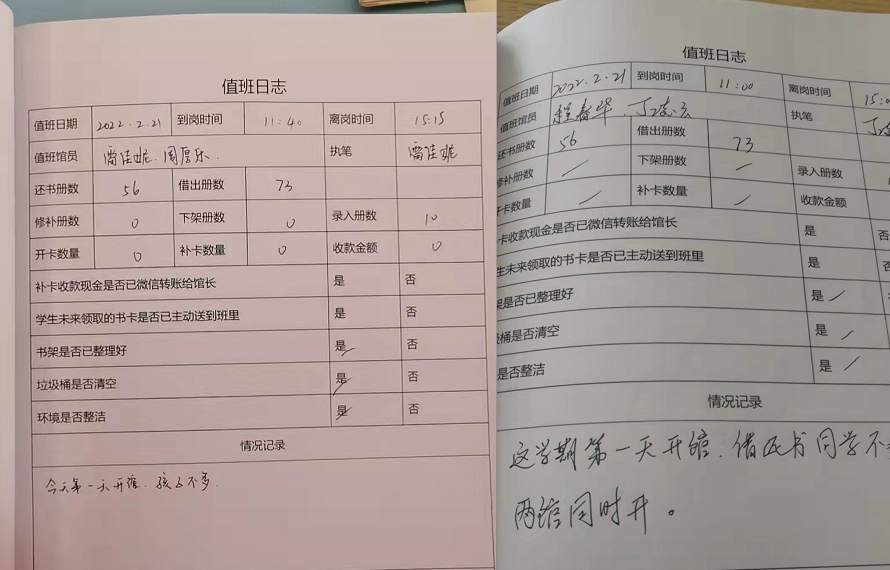 值班日志
值班日期 2022.2.21 到岗时间 11:40 离岗时间 15:15
值班馆员 雷佳妮、周厚乐. 执笔 雷佳妮
还书册数 56 借出册数 73
修补册数 0 下架册数 0 录入册数 10
开卡数量 0 补卡数量 0 收款金额 0
补卡收款现金是否已微信转账给馆长 是 否
学生未来领取的书卡是否已主动送到班里 是 否
书架是否已整理好 是 否
垃圾桶是否清空 是 否
环境是否整洁 是 否
情况记录
今天第一天开馆、孩子不多.
值班日志
值班日期 2022.2.21 到岗时间 11:00 离岗时间 15:0
值班馆员 程春华、丁凌云 执笔 丁凌
还书册数 56 借出册数 73
修补册数 下架册数 录入册数
开卡数量 补卡数量 收款金额
卡收款现金是否已微信转账给馆长 是 否
生未来领取的书卡是否已主动送到班里 是 否
架是否已整理好 是
圾桶是否清空 是
是否整洁 是
情况记录
这学期第一天开馆.借还书同学不
两馆同时开。